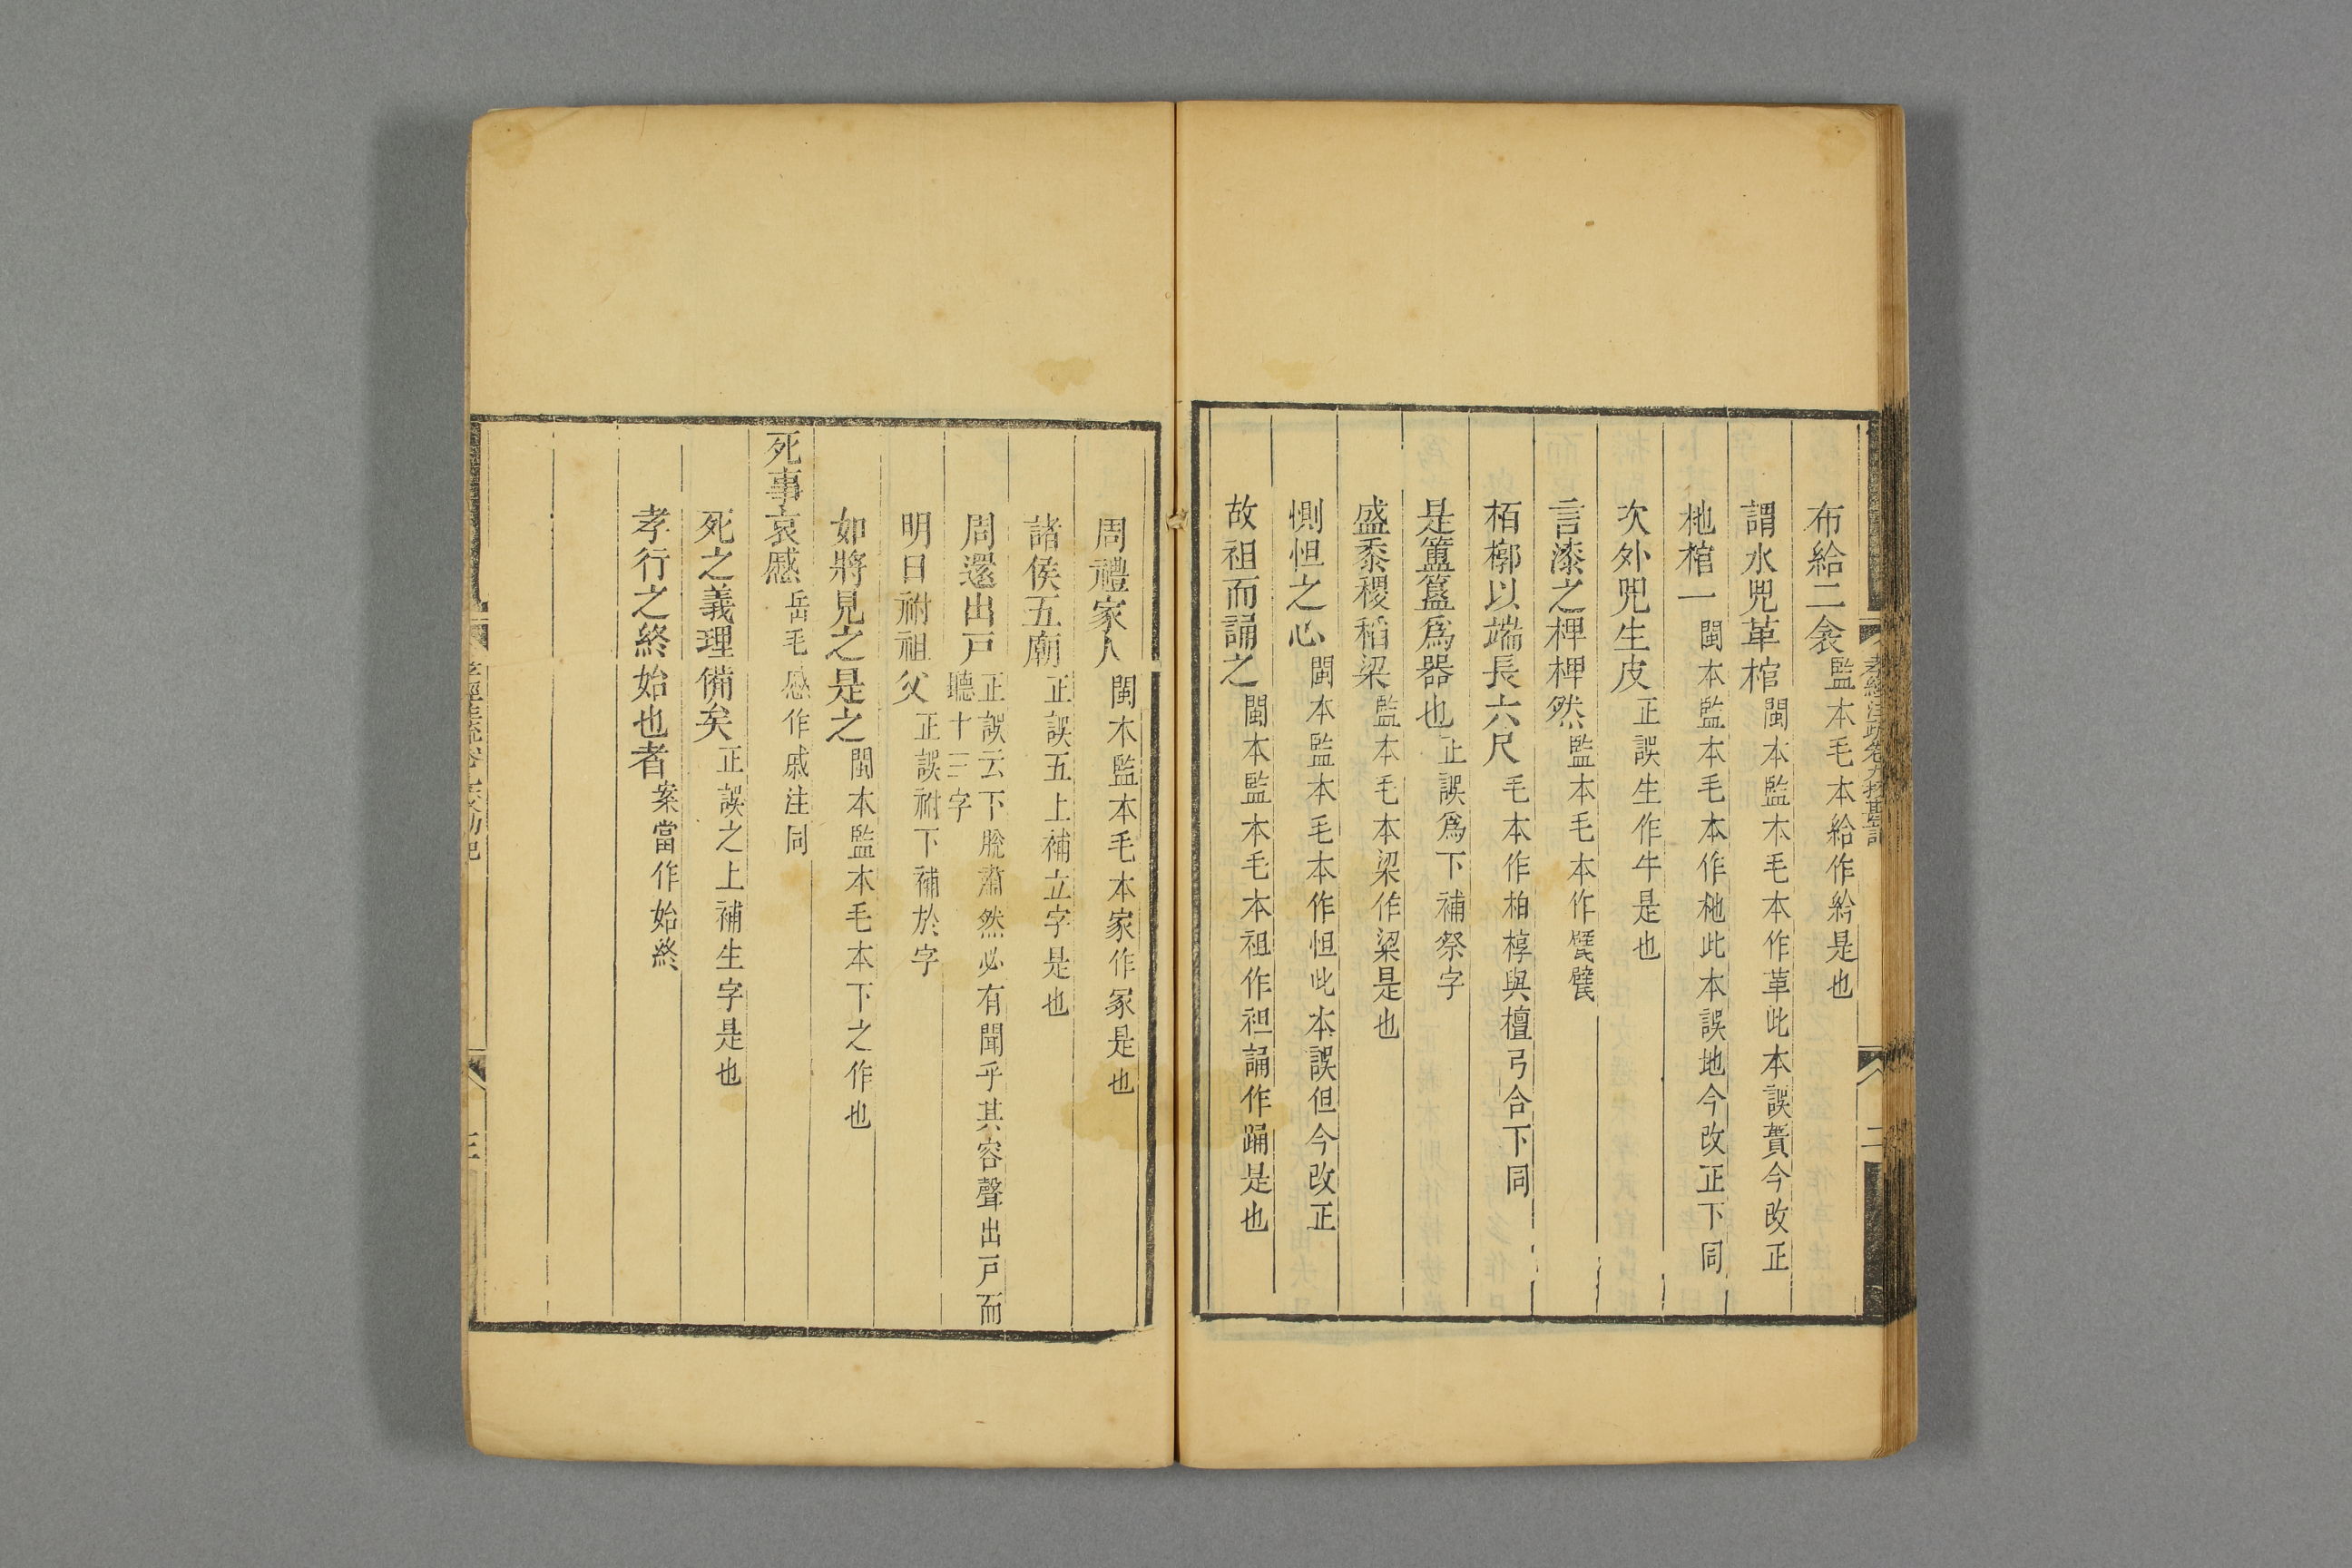 布給二衾監本毛本給作紟是也
謂水兕革棺閩本監本毛本作革此本誤賷今改正
杝棺一閩本監本毛本作杝此本誤地今改正下同
次外兕生皮正誤生作牛是也
言漆之椑椑然監本毛本作甓甓
栢槨以端長六尺毛本作柏椁與檀弓合下同
是簠簋爲器也正誤爲下補祭字
盛黍稷稻梁監本毛本梁作粱是也
惻怛之心閩本監本毛本作怛此本誤但今改正
故祖而誦之閩本監本毛本祖作袒誦作踊是也
孝經注疏卷九挍勘記
二
周禮家人閩本監本毛本家作冢是也
諸侯五廟正誤五上補立字是也
周還出戸正誤云下脫肅然必有聞乎其容聲出戸而聽十三字
明日祔祖父正誤祔下補於字
如將見之是之閩本監本毛本下之作也
死事哀慼岳毛慼作戚注同
死之義理備矣正誤之上補生字是也
孝行之終始也者案當作始終
孝經注疏卷九挍勘記
三